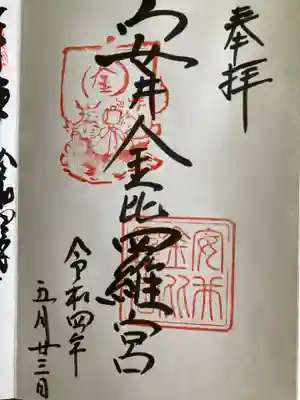 奉拝
安井金比羅宮
令和四年
五月廿三日
金
安井
金比